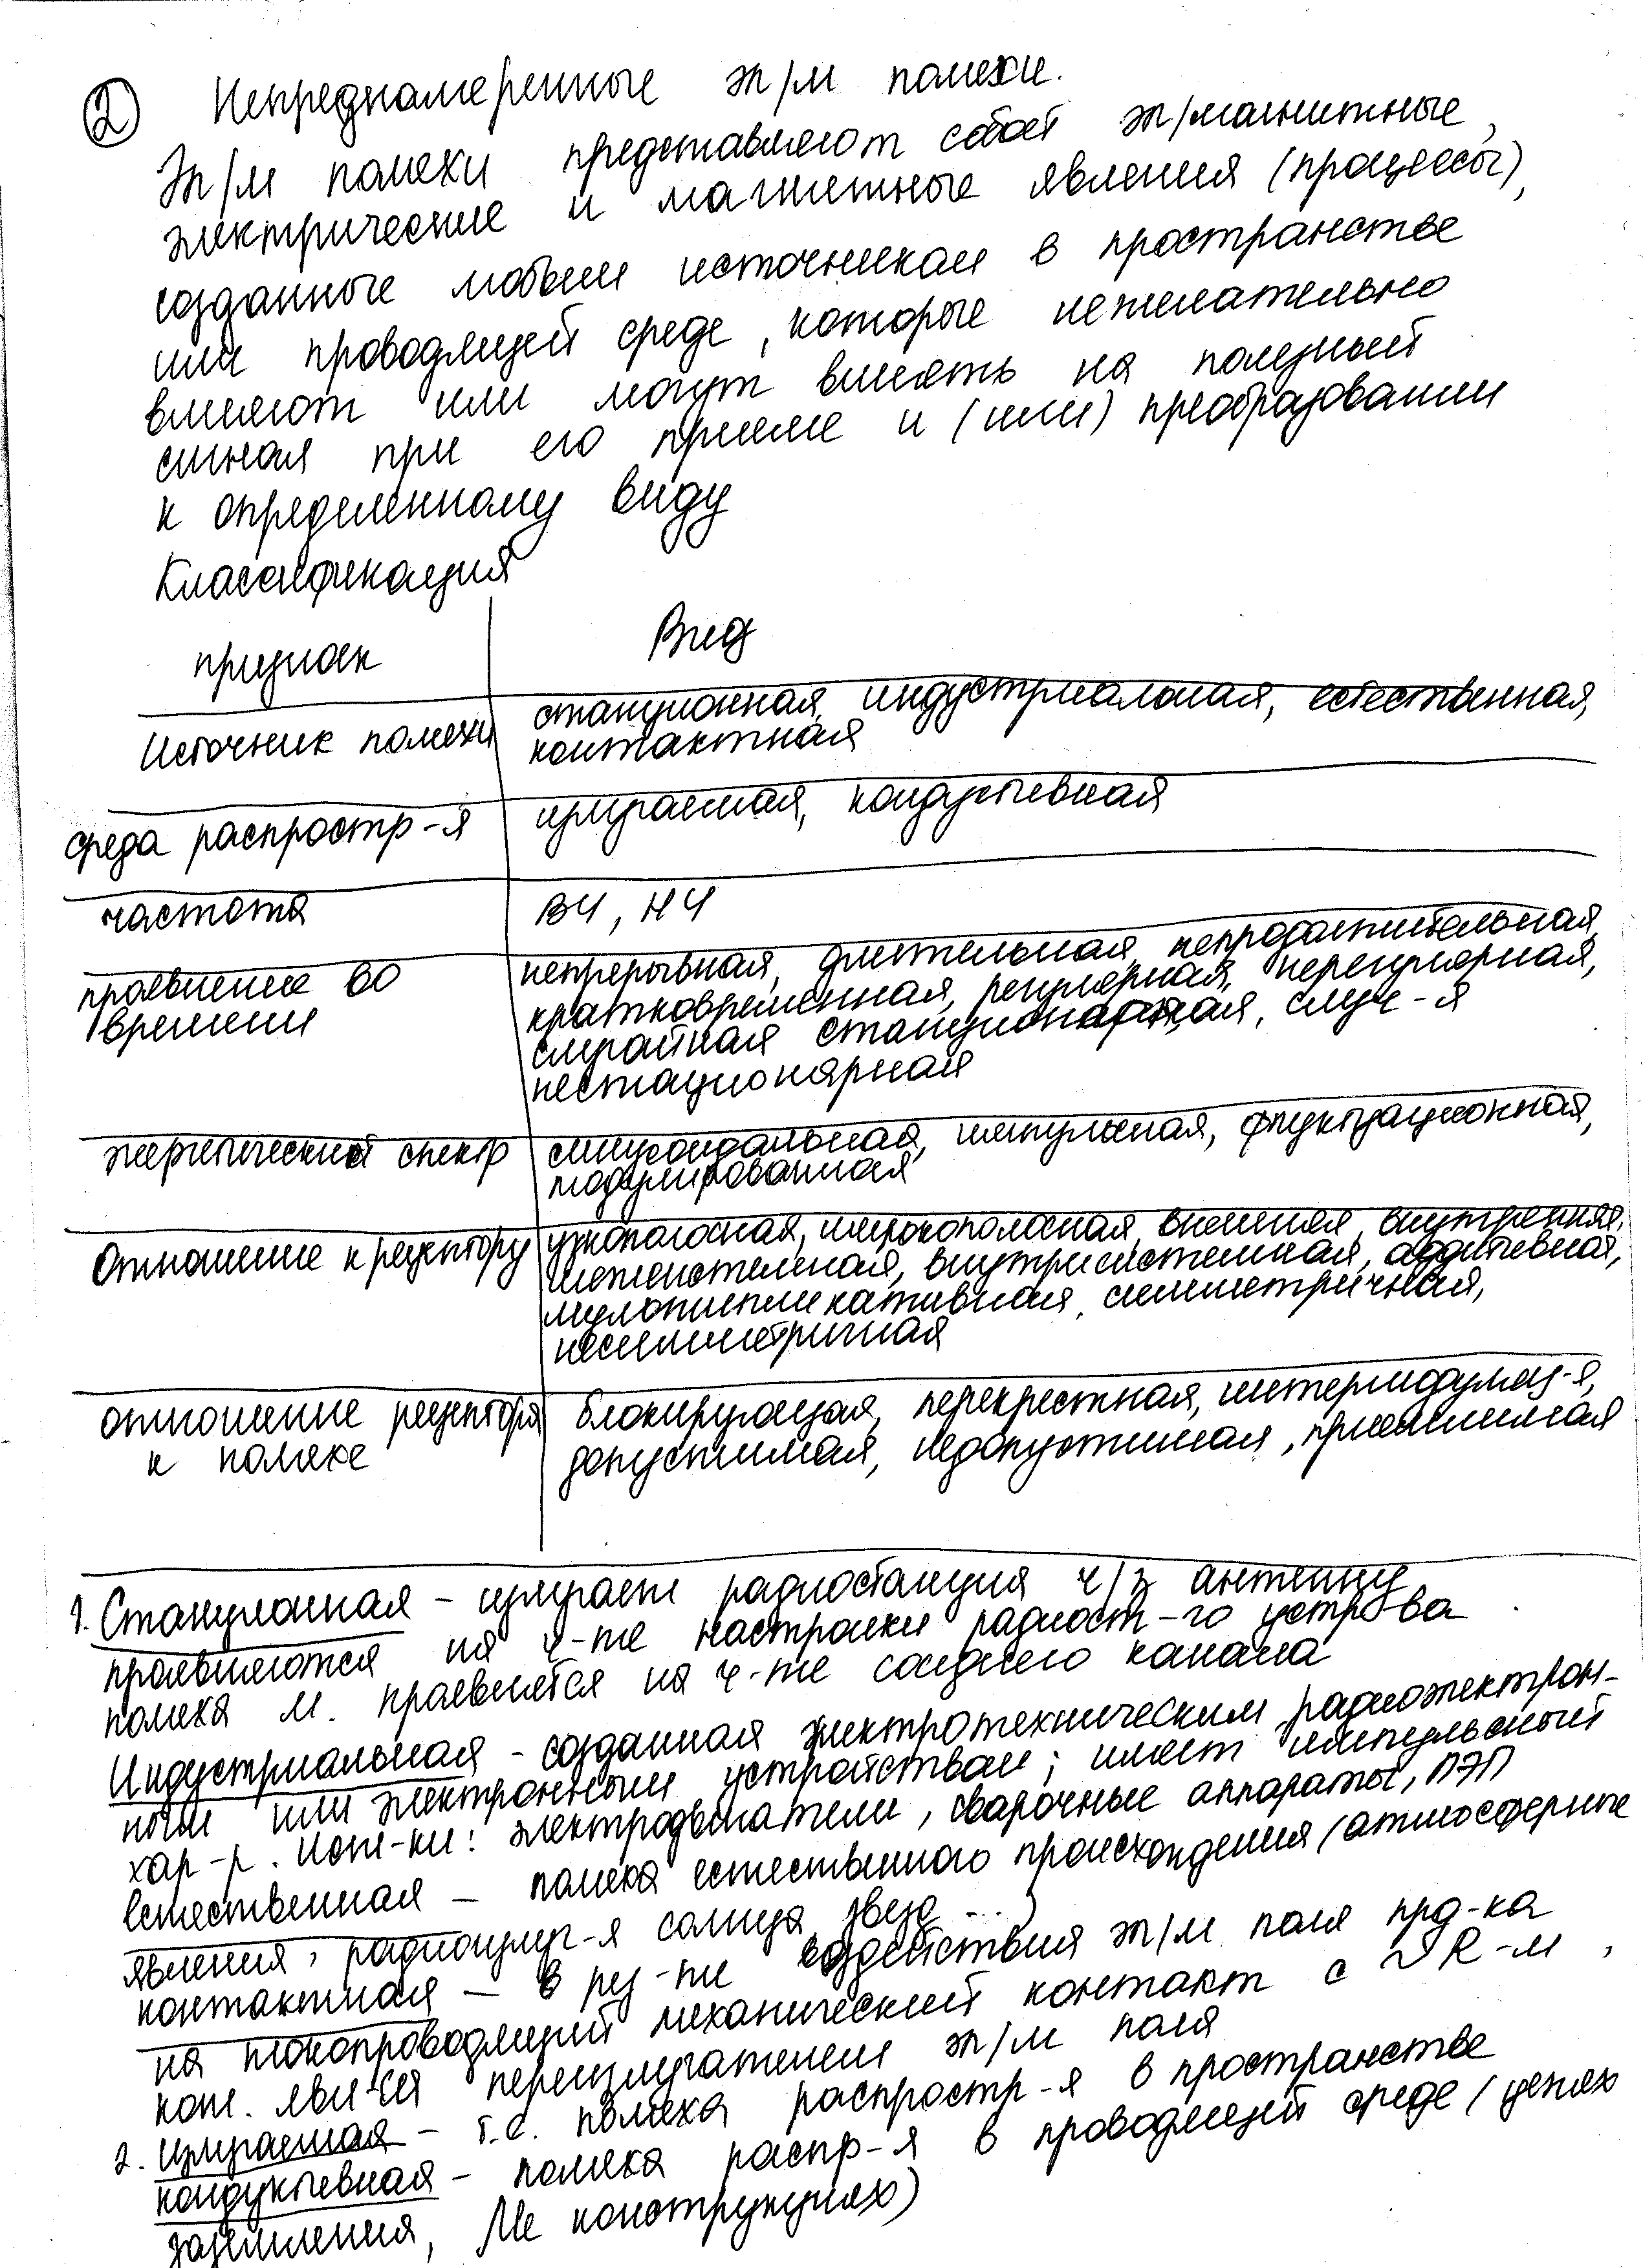 ② Непреднамеренные эл/м помехи.
Эл/м помехи представляют собой эл/магнитные,
электрические и магнитные явления (процессы),
созданные любым источником в пространстве
или проводящей среде, которые нежелательно
влияют или могут влиять на полезный
сигнал при его приеме и (или) преобразовании
к определенному виду
Классификация
признак Вид
Источник помехи станционная, индустриальная, естественная,
контактная
среда распростр-я излучаемая, кондуктивная
частота ВЧ, НЧ
проявление во времени непрерывная, длительная, непродолжительная,
кратковременная, регулярная, нерегулярная,
случайная стационарная, случ-я
нестационарная
энергетический спектр синусоидальная, импульсная, флуктуационная,
модулированная
Отношение к рецептору узкополосная, широкополосная, внешняя, внутренняя,
межсистемная, внутрисистемная, аддитивная,
мультипликативная, симметричная,
несимметричная
отношение рецептора блокирующая, перекрестная, интермодуляц-я,
к помехе допустимая, недопустимая, приемлемая
1. Станционная - излучает радиостанция ч/з антенну
проявляются на ч-те настройки радиост-го устр-ва
помеха м. проявляется на ч-те соседнего канала
Индустриальная - созданная электротехническим, радиоэлектрон-
ным или электронным устройствам; имеет импульсный
хар-р. Ист-ки: электродвигатели, сварочные аппараты, ЛЭП
Естественная - помеха естественного происхождения (атмосферные
явления, радиоизлуч-я солнца, звезд ...)
контактная - в рез-те воздействия эл/м поля прд-ка
на токопроводящий механический контакт с ~R-м,
кот. явл-ся переизлучателем эл/м поля
2. Излучаемая - т.е. помеха распростр-я в пространстве
кондуктивная - помеха распр-я в проводящей среде (цепях
заземления, Ме конструкциях)